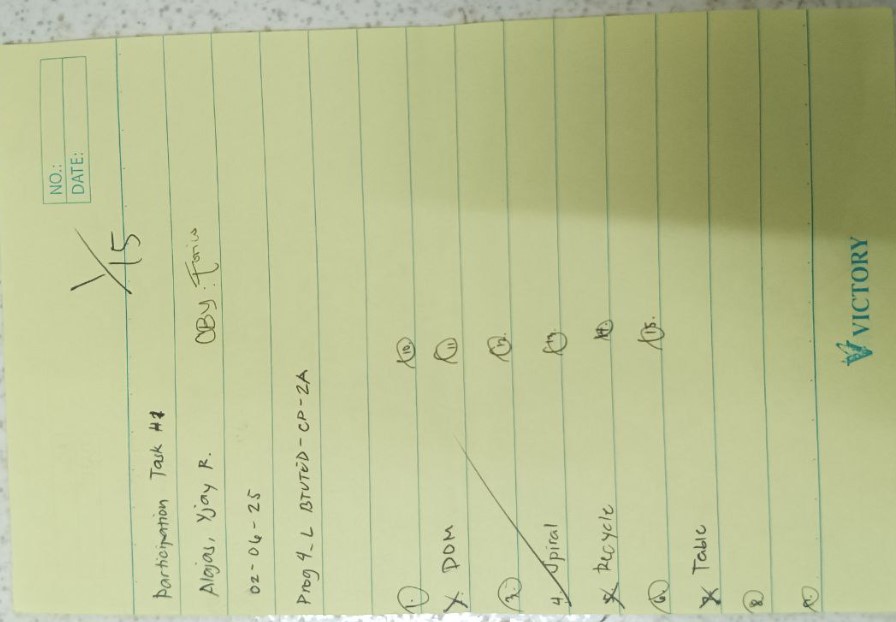 NO.:
DATE:
1/15
Participation Task #1
Alajas, Yjay R.
CBY:
02-04-25
Prog 4_L BTVTED-CP-2A
1.
2. DOM
3.
4. Spiral
5. Recycle
6.
7. Table
8.
9.
10.
11.
12.
13.
14.
15.
VICTORY